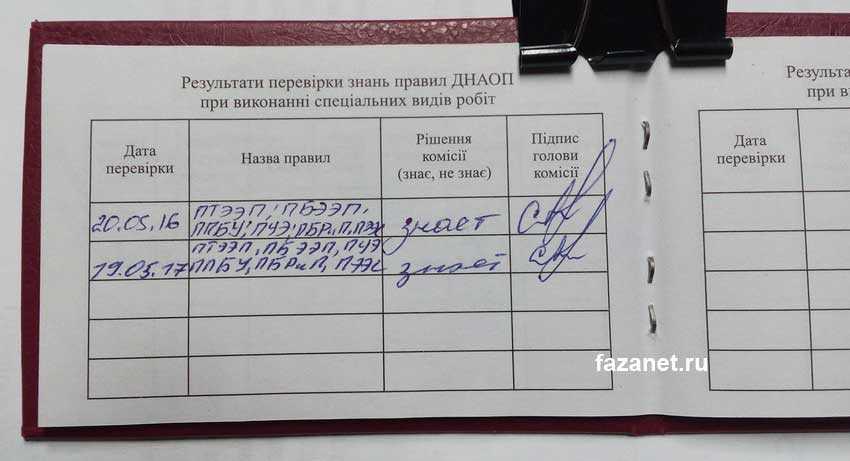 Результати перевірки знань правил ДНАОП
при виконанні спеціальних видів робіт
Дата
перевірки
Назва правил
Рішення
комісії
(знає, не знає)
Підпис
голови
комісії
20.05.16
ПТЭЭП, ПБЭЭП,
ППБУ, ПУЭ, ПБРиП, ПТЭ
знает
19.05.17
ПТЭЭП, ПБЭЭП, ПУЭ
ППБУ, ПБРиП,
знает
Результа
при ви
Дата
перевірки
fazanet.ru